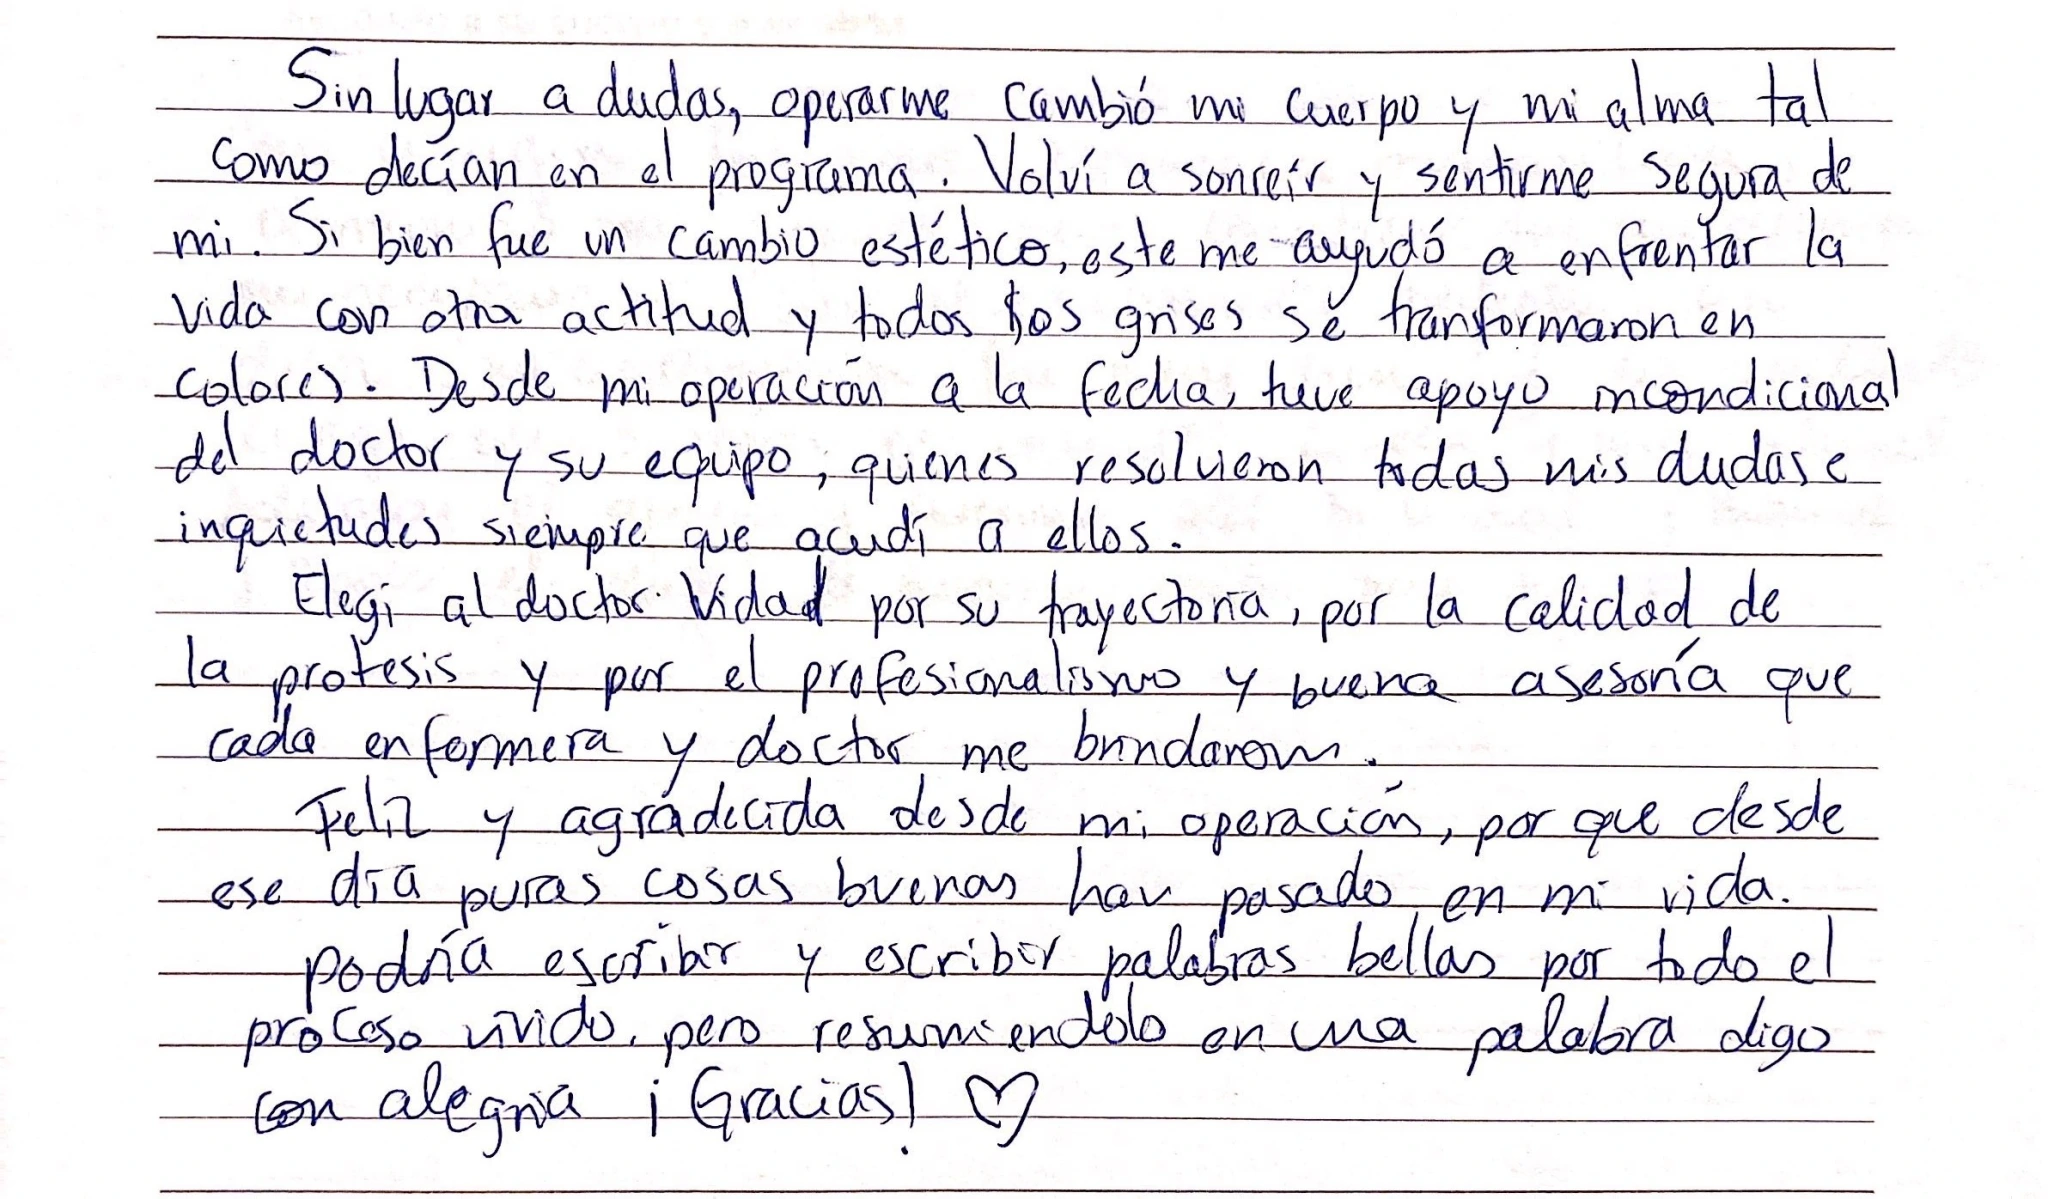 Sin lugar a dudas, operarme cambió mi cuerpo y mi alma tal
como decían en el programa. Volví a sonreír y sentirme segura de
mi. Si bien fue un cambio estético, este me ayudó a enfrentar la
vida con otra actitud y todos los grises se transformaron en
colores. Desde mi operación a la fecha, tuve apoyo incondicional
del doctor y su equipo, quienes resolvieron todas mis dudas e
inquietudes siempre que acudí a ellos.
Elegi al doctor Vidal por su trayectoria, por la calidad de
la protesis y por el profesionalismo y buena asesoría que
cada enfermera y doctor me brindaron.
Feliz y agradecida desde mi operación, por que desde
ese día puras cosas buenas han pasado en mi vida.
podría escribir y escribir palabras bellas por todo el
proceso vivido, pero resumiendolo en una palabra digo
con alegría ¡Gracias! ♡